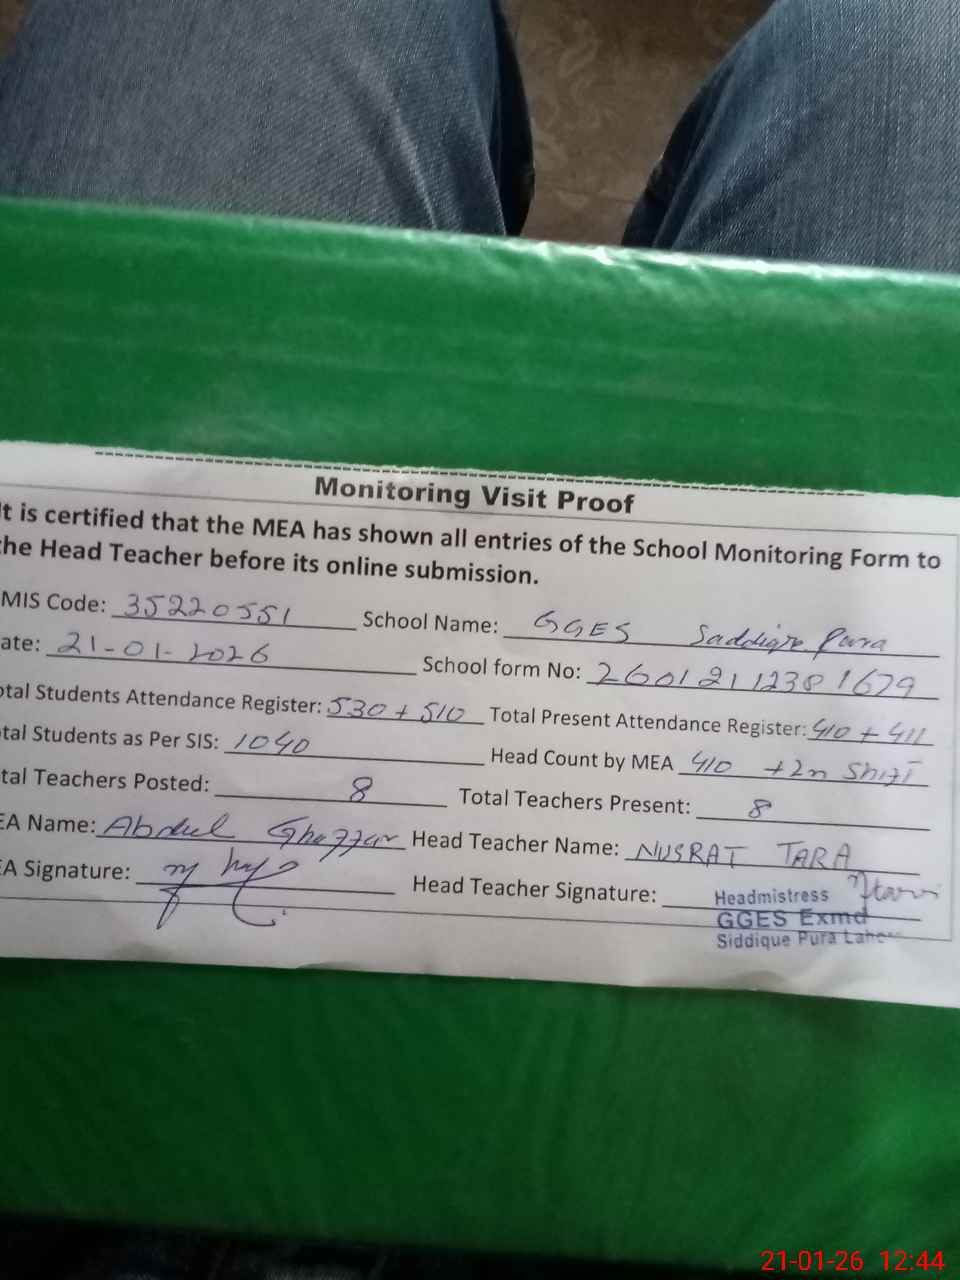 Monitoring Visit Proof
It is certified that the MEA has shown all entries of the School Monitoring Form to
the Head Teacher before its online submission.
MIS Code: 35220551 School Name: GGES Saddique Pura
ate: 21-01-2026 School form No: 26012112381679
otal Students Attendance Register: 530 + 510 Total Present Attendance Register: 410 + 411
tal Students as Per SIS: 1040 Head Count by MEA 410 + 2n Shift
tal Teachers Posted: 8 Total Teachers Present: 8
EA Name: Abdul Ghaffar Head Teacher Name: NUSRAT TARA
EA Signature: Head Teacher Signature:
Headmistress
GGES Exmd
Siddique Pura Lahore
21-01-26 12:44